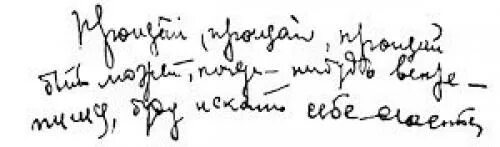 Прощай, прощай, прощай
быть может, когда-нибудь встре-
тимся, буду искать себе счастья